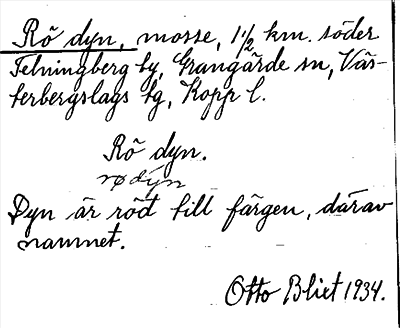 Rö dyn, mosse, 1 1/2 km. söder
Telningberg by, Grangärde sn, Väs-
terbergslags tg, Kopp l.
Rö dyn.
rø dýn
Dyn är röd till färgen, därav
namnet.
Otto Blixt 1934.